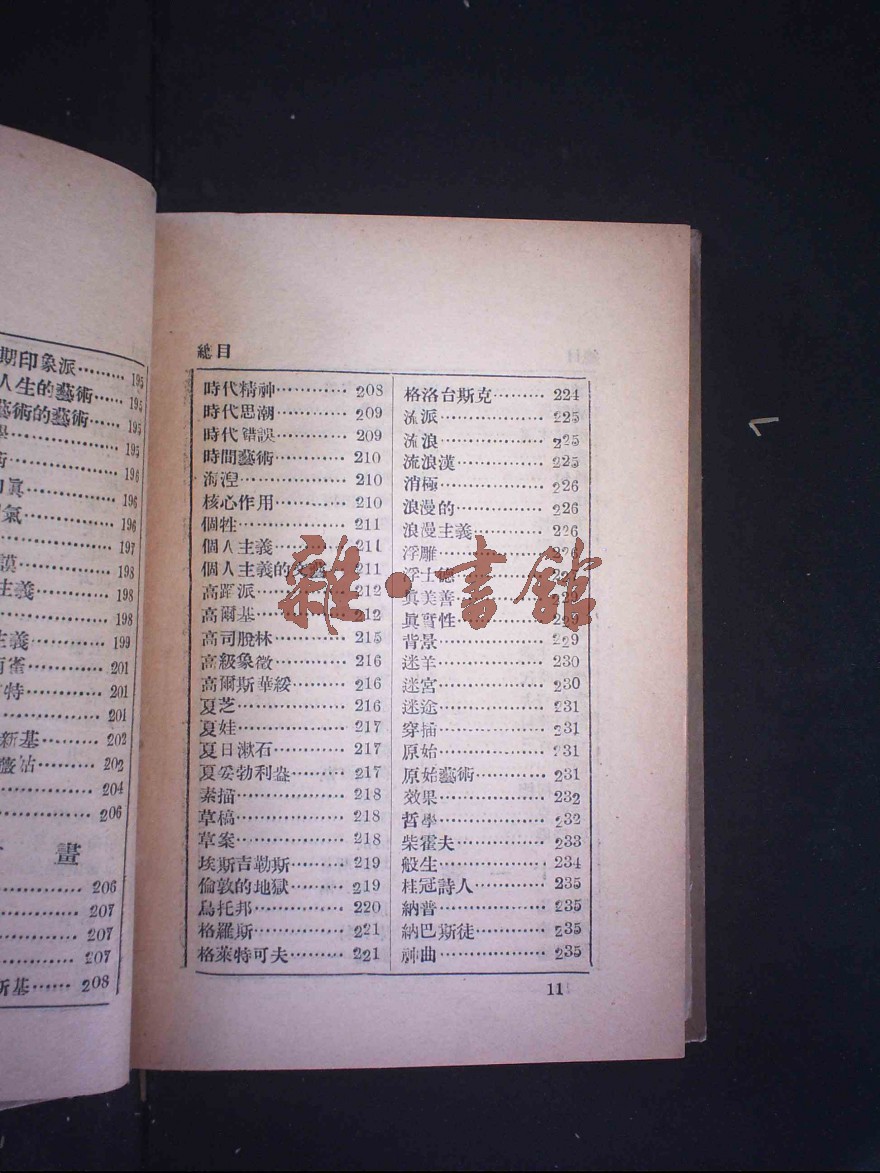 期印象派……… 195
人生的藝術…… 195
藝術的藝術…… 195
………… 195
………… 196
………… 196
………… 196
………… 197
………… 198
主義……… 198
………… 198
主義……… 199
………… 201
特……… 201
………… 201
新基……… 202
………… 202
………… 204
………… 206
畫
………… 206
………… 207
………… 207
………… 207
斯基…… 208
總目
時代精神………… 208
時代思潮………… 209
時代錯誤………… 209
時間藝術………… 210
海涅………… 210
核心作用………… 210
個性………… 211
個人主義………… 211
個人主義的文藝… 211
高蹈派………… 212
高爾基………… 212
高司脫林………… 215
高級象徵………… 216
高爾斯華綏……… 216
夏芝………… 216
夏娃………… 217
夏目漱石………… 217
夏妥勃利盎……… 217
素描………… 218
草稿………… 218
草案………… 218
埃斯吉勒斯……… 219
倫敦的地獄……… 219
烏托邦………… 220
格羅斯………… 221
格萊特可夫……… 221
格洛台斯克……… 224
流派………… 225
流浪………… 225
流浪漢………… 225
消極………… 226
浪漫的………… 226
浪漫主義………… 226
浮雕………… 226
浮士德…………
眞美善…………
眞實性………… 229
背景………… 229
迷羊………… 230
迷宮………… 230
迷途………… 231
穿插………… 231
原始………… 231
原始藝術………… 231
效果………… 232
哲學………… 232
柴霍夫………… 233
般生………… 234
桂冠詩人………… 235
納普………… 235
納巴斯徒………… 235
神曲………… 235
11
雜·書館